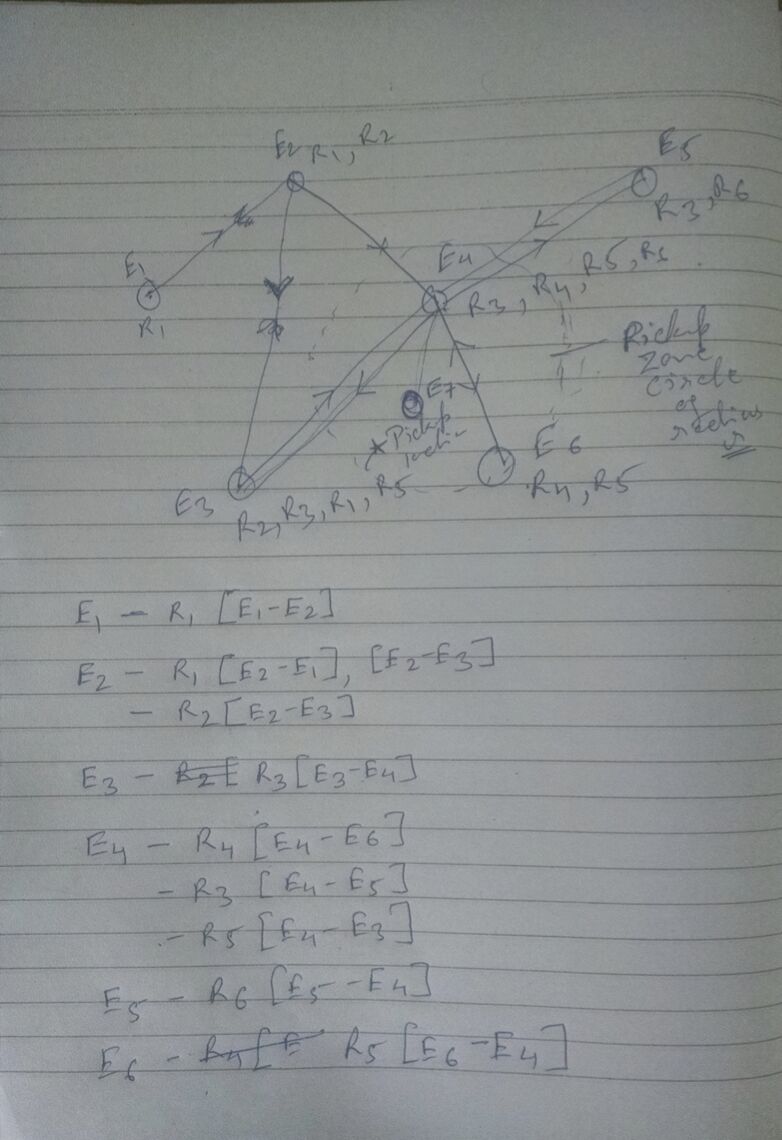 E2 R1, R2
E5
R3, R6
E1
R1
E4
R3, R4, R5, R6
Pickup
zone
circle
of
radius
r
E7
* Pickup
E6
R4, R5
E3
R2, R3, R1, R5
E1 - R1 [E1-E2]
E2 - R1 [E2-E1], [E2-E3]
- R2 [E2-E3]
E3 - R2 [ R3 [E3-E4]
E4 - R4 [E4-E6]
- R3 [E4-E5]
- R5 [E4-E3]
E5 - R6 [E5-E4]
E6 - R4 [E R5 [E6-E4]